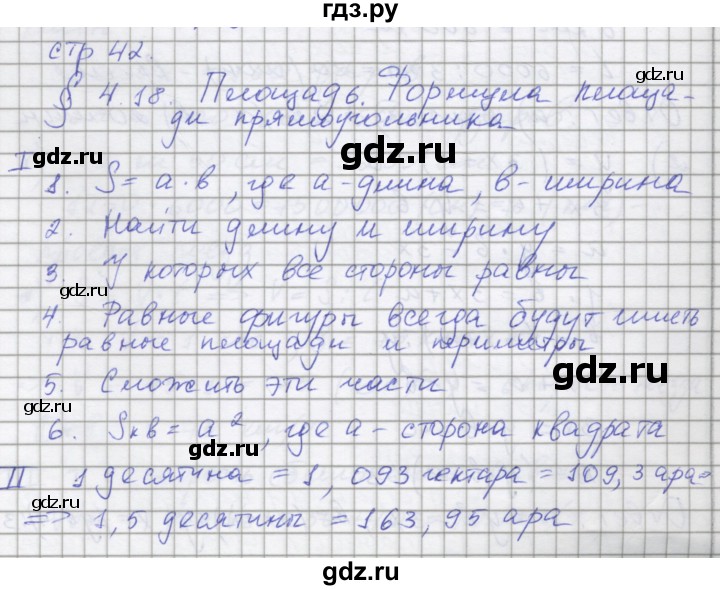 гдз.ру
стр 42.
§ 4.18. Площадь. Формула площа-
ди прямоугольника
gdz.ru
gdz.ru
I 1. S = a · b, где a - длина, b - ширина
2. Найти длину и ширину
3. У которых все стороны равны
gdz.ru
gdz.ru
4. Равные фигуры всегда будут иметь
равные площади и периметры
gdz.ru
5. Сложить эти части
gdz.ru
6. Sкв = a², где a - сторона квадрата
II 1 десятина = 1,093 гектара = 109,3 ара =
gdz.ru
=> 1,5 десятины = 163,95 ара
gdz.ru
gdz.ru